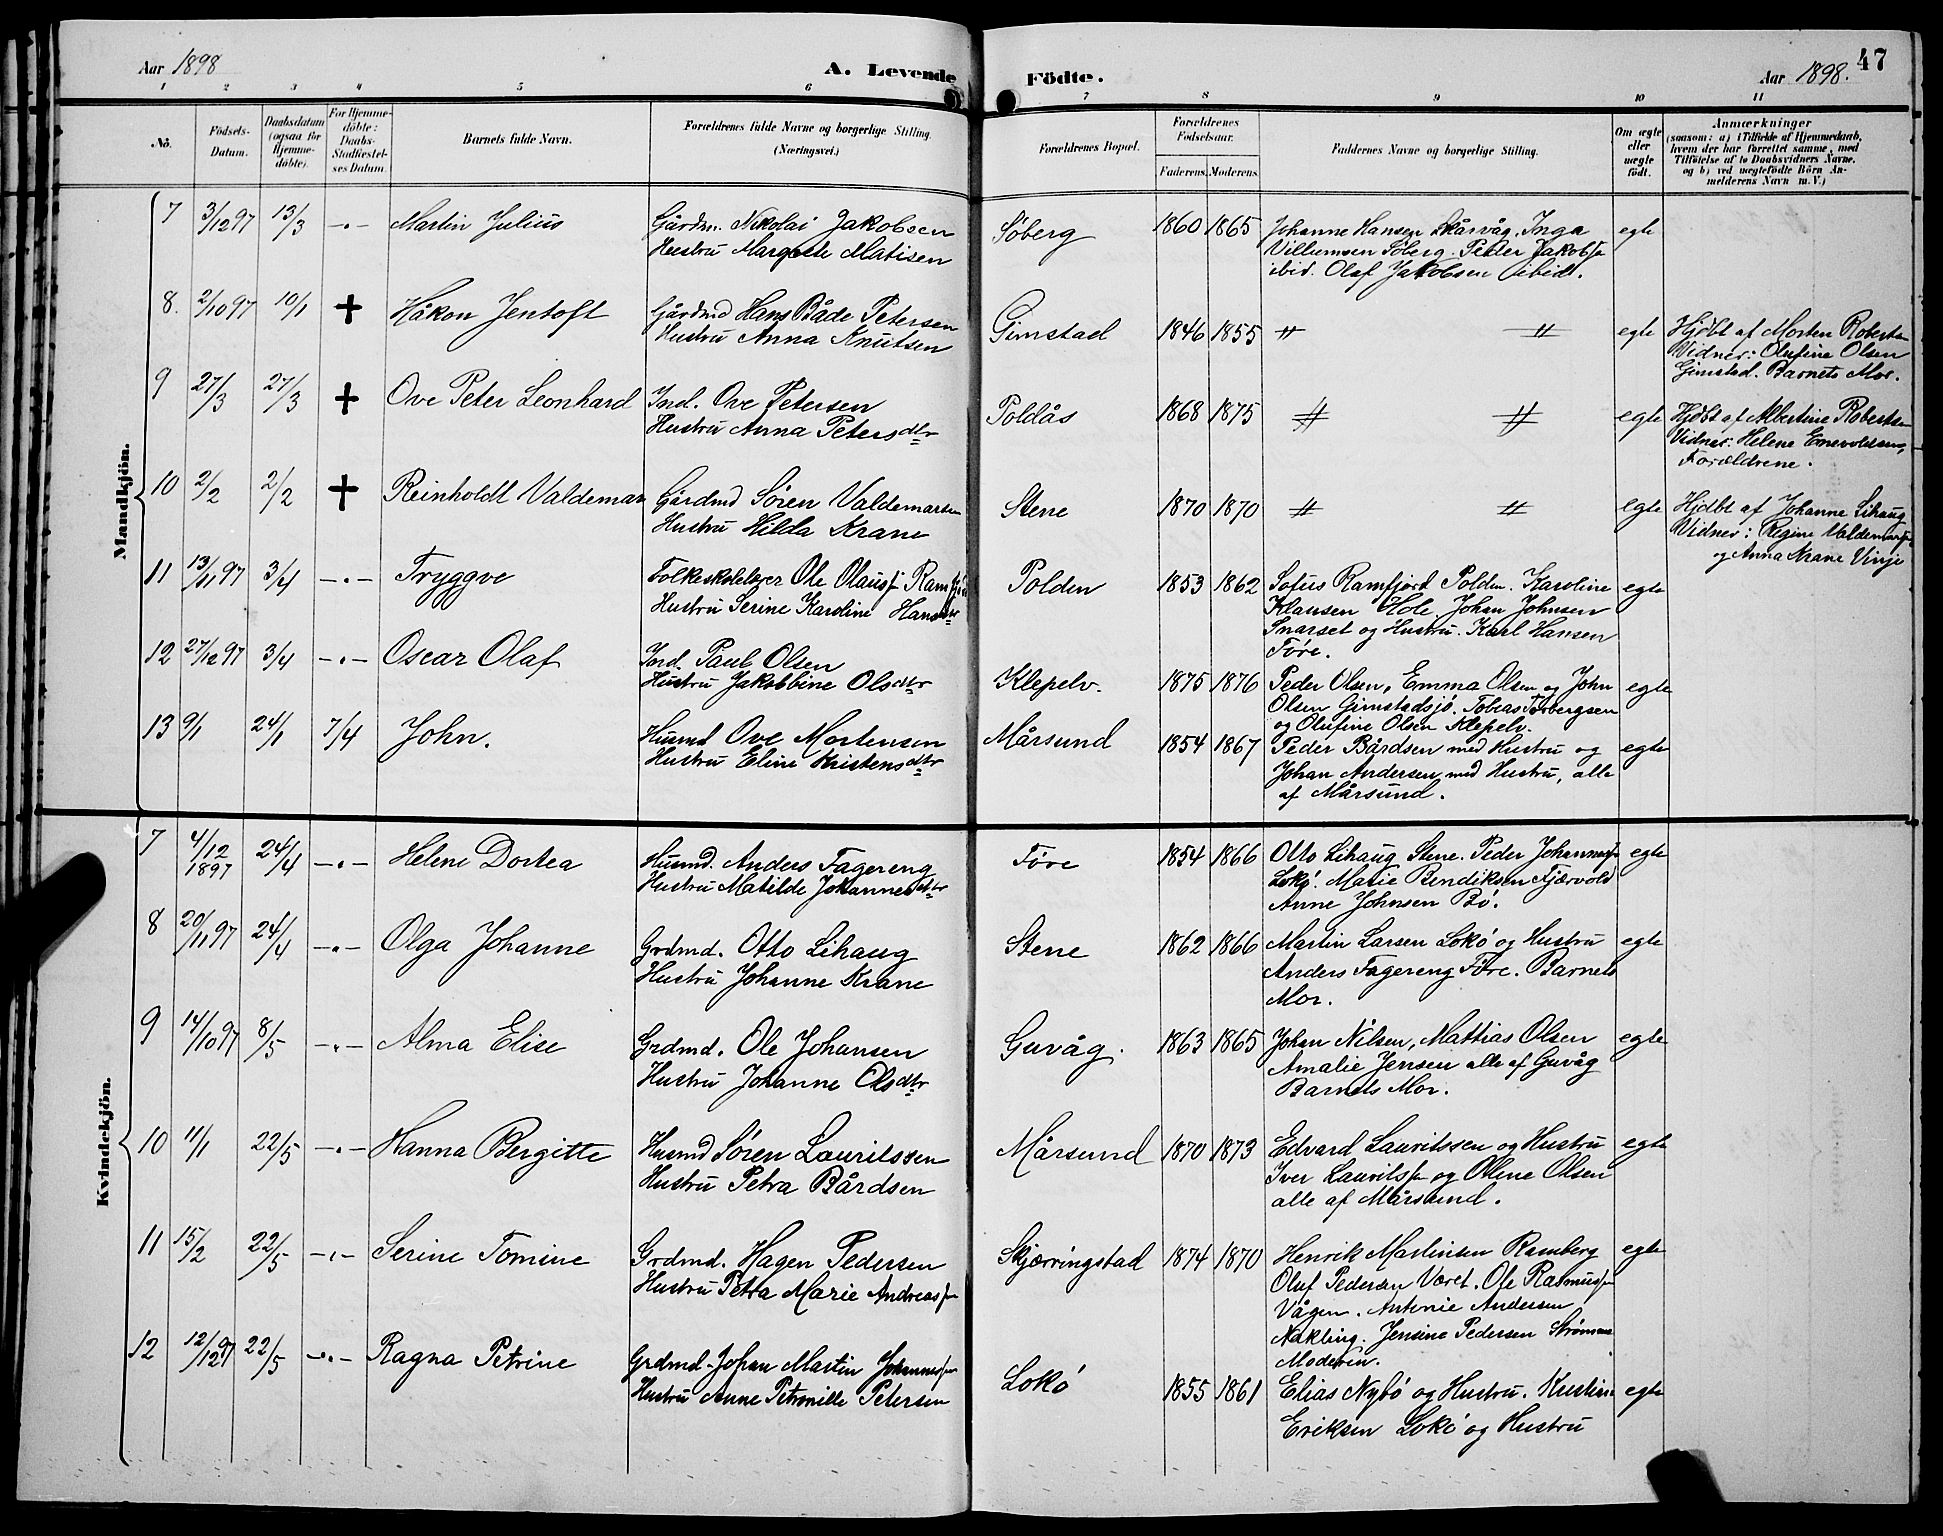 Aar 1898
A. Levende Födte.
Aar 1898.
47
1 2 3 4 5 6 7 8 9 10 11
No.
Födsels-Datum.
Daabsdatum (ogsaa for Hjemme-döbte).
For Hjemme-döbte: Daabs-Stadfæstel-ses Datum.
Barnets fulde Navn.
Forældrenes fulde Navne og borgerlige Stilling.
(Næringsvei.)
Forældrenes Bopæl.
Forældrenes Födselsaar.
Faderens. Moderens.
Faddernes Navne og borgerlige Stilling.
Om ægte eller uægte født.
Anmærkninger
(saasom: a) i Tilfælde af Hjemmedaab,
hvem der har forrettet samme, med
Tilföielse af to Daabsvidners Navne,
og b) ved uægtefödte Börn An-
melderens Navn m. V.)
Mandkjön.
7 3/12 97 13/3 -"- Martin Julius Gårdm. Nikolai Jakobsen Søberg 1860 1865 Johanne Hansen Skårvåg. Inga egte
Hustru Margrete Matisen Villumsen Søberg. Peder Jakobs
ibid. Olaf Jakobsen ibid.
8. 2/10 97 10/1 + Håkon Jentoft Gårdmd Hans Både Petersen Gimstad 1846 1855 " " egte Hjdbt af Morten Roberts
Hustru Anna Knutsen Vidner: Olufine Olsen
Gimstad. Barnets Mor.
9 27/3 27/3 + Ove Peter Leonhard Ind. Ove Petersen Poldås 1868 1875 " " egte Hjdbt af Albertine Roberts
Hustru Anna Petersdtr Vidner: Helene Enevoldsen,
Forældrene.
10 2/2 2/2 + Reinholdt Valdemar Gårdmd Søren Valdemarsen Stene 1870 1870 " " egte Hjdbt af Johanne Lihaug
Hustru Hilda Krane Vidner: Regine Valdemars
og Anna Krane Vinje
11 13/11 97 3/4 -"- Tryggve Folkeskolelærer Ole Olaus Ramfjord Polden 1853 1862 Sofus Ramfjord Polden. Karoline egte
Hustru Serine Karoline Hansdtr Klausen Hole. Johan Johnsen
Snarset og Hustru. Karl Hansen
Føre.
12 27/12 97 3/4 -"- Oscar Olaf Ind. Paul Olsen Klepelv. 1875 1876 Peder Olsen, Emma Olsen og John egte
Hustru Jakobbine Olsdtr Olsen Gimstadsjø. Tobias Torbergsen
og Olufine Olsen Klepelv.
13 9/1 24/1 7/4 John. Husmd Ove Mortensen Mårsund 1854 1867 Peder Bårdsen med Hustru og egte
Hustru Eline Kristensdtr Johan Andersen med Hustru, alle
af Mårsund.
Kvindekjön.
7 4/12 1897 24/4 -"- Helene Dortea Husmd. Anders Fagereng Føre 1854 1866 Otto Lihaug Stene. Peder Johannes egte
Hustru Matilde Johannesdtr Lokø. Marie Bendiksen Fjærvold
Anne Johnsen Bø.
8 20/11 97 24/4 -"- Olga Johanne Grdmd. Otto Lihaug Stene 1862 1866 Martin Larsen Lokø og Hustru egte
Hustru Johanne Krane Anders Fagereng Føre. Barnets
Mor.
9 14/10 97 8/5 -"- Alma Elise Grdmd. Ole Johansen Guvåg. 1863 1865 Johan Nilsen, Mattias Olsen egte
Hustru Johanne Olsdtr Amalie Jensen alle af Guvåg
Barnets Mor.
10 11/1 22/5 -"- Hanna Bergitte Husmd Søren Lauritssen Mårsund 1870 1873 Edvard Lauritssen og Hustru egte
Hustru Petra Bårdsen Iver Laurits og Olene Olsen
alle af Mårsund.
11 15/2 22/5 -"- Serine Tomine Grdmd. Hagen Pedersen Skjærringstad 1874 1870 Henrik Martinsen Ramberg egte
Hustru Petra Marie Andreas Oluf Pedersen Været. Ole Rasmus
Vågen. Antonie Andersen
Nakling. Jensine Pedersen
Moderen.
12 12/12 97 22/5 -"- Ragna Petrine Grdmd. Johan Martin Johannes Lokø 1855 1861 Elias Nybø og Hustru. Kristian egte
Hustru Anne Petronille Petersen Eriksen Lokø og Hustru